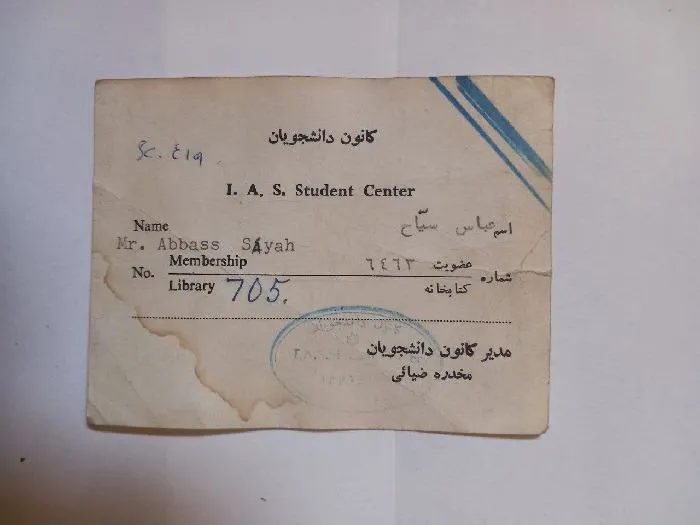 کانون دانشجویان
I. A. S. Student Center
Name
اسم عباس سیّاح
Mr. Abbass Sayah
Membership
عضویت ٦٤٦٣
No.
شماره
Library 705.
کتابخانه
مدیر کانون دانشجویان
مخدره ضیائی